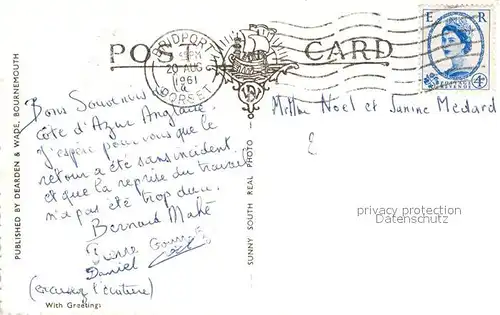 POST CARD
BRIDPORT
PM
20 AUG
1961
DORSET
E R
4D
PUBLISHED BY DEARDEN & WADE, BOURNEMOUTH
Bons Souvenirs
Côte d'Azur Anglaise.
J'espère pour vous que le
retour a été sans incident
et que la reprise du travail
n'a pas été trop dure.
Bernard Mahé
Daniel
(excusez l'écriture)
With Greetings
SUNNY SOUTH REAL PHOTO
Noël et Janine Medard
privacy protection
datenschutz